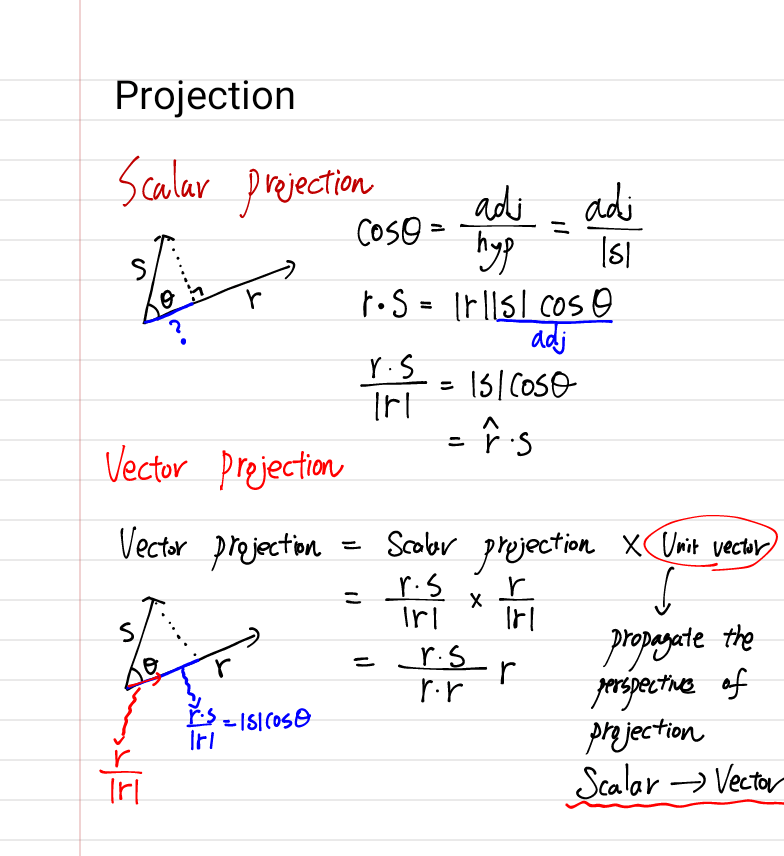 Projection
Scalar projection
cosθ = adj/hyp = adj/|s|
s
θ
r
?
r·s = |r||s| cosθ
adj
r·s/|r| = |s|cosθ
= r̂·s
Vector projection
Vector projection = Scalar projection × Unit vector
= r·s/|r| × r/|r|
= r·s/r·r r
s
θ
r
r·s/|r| = |s|cosθ
r/|r|
propagate the
perspective of
projection
Scalar → Vector